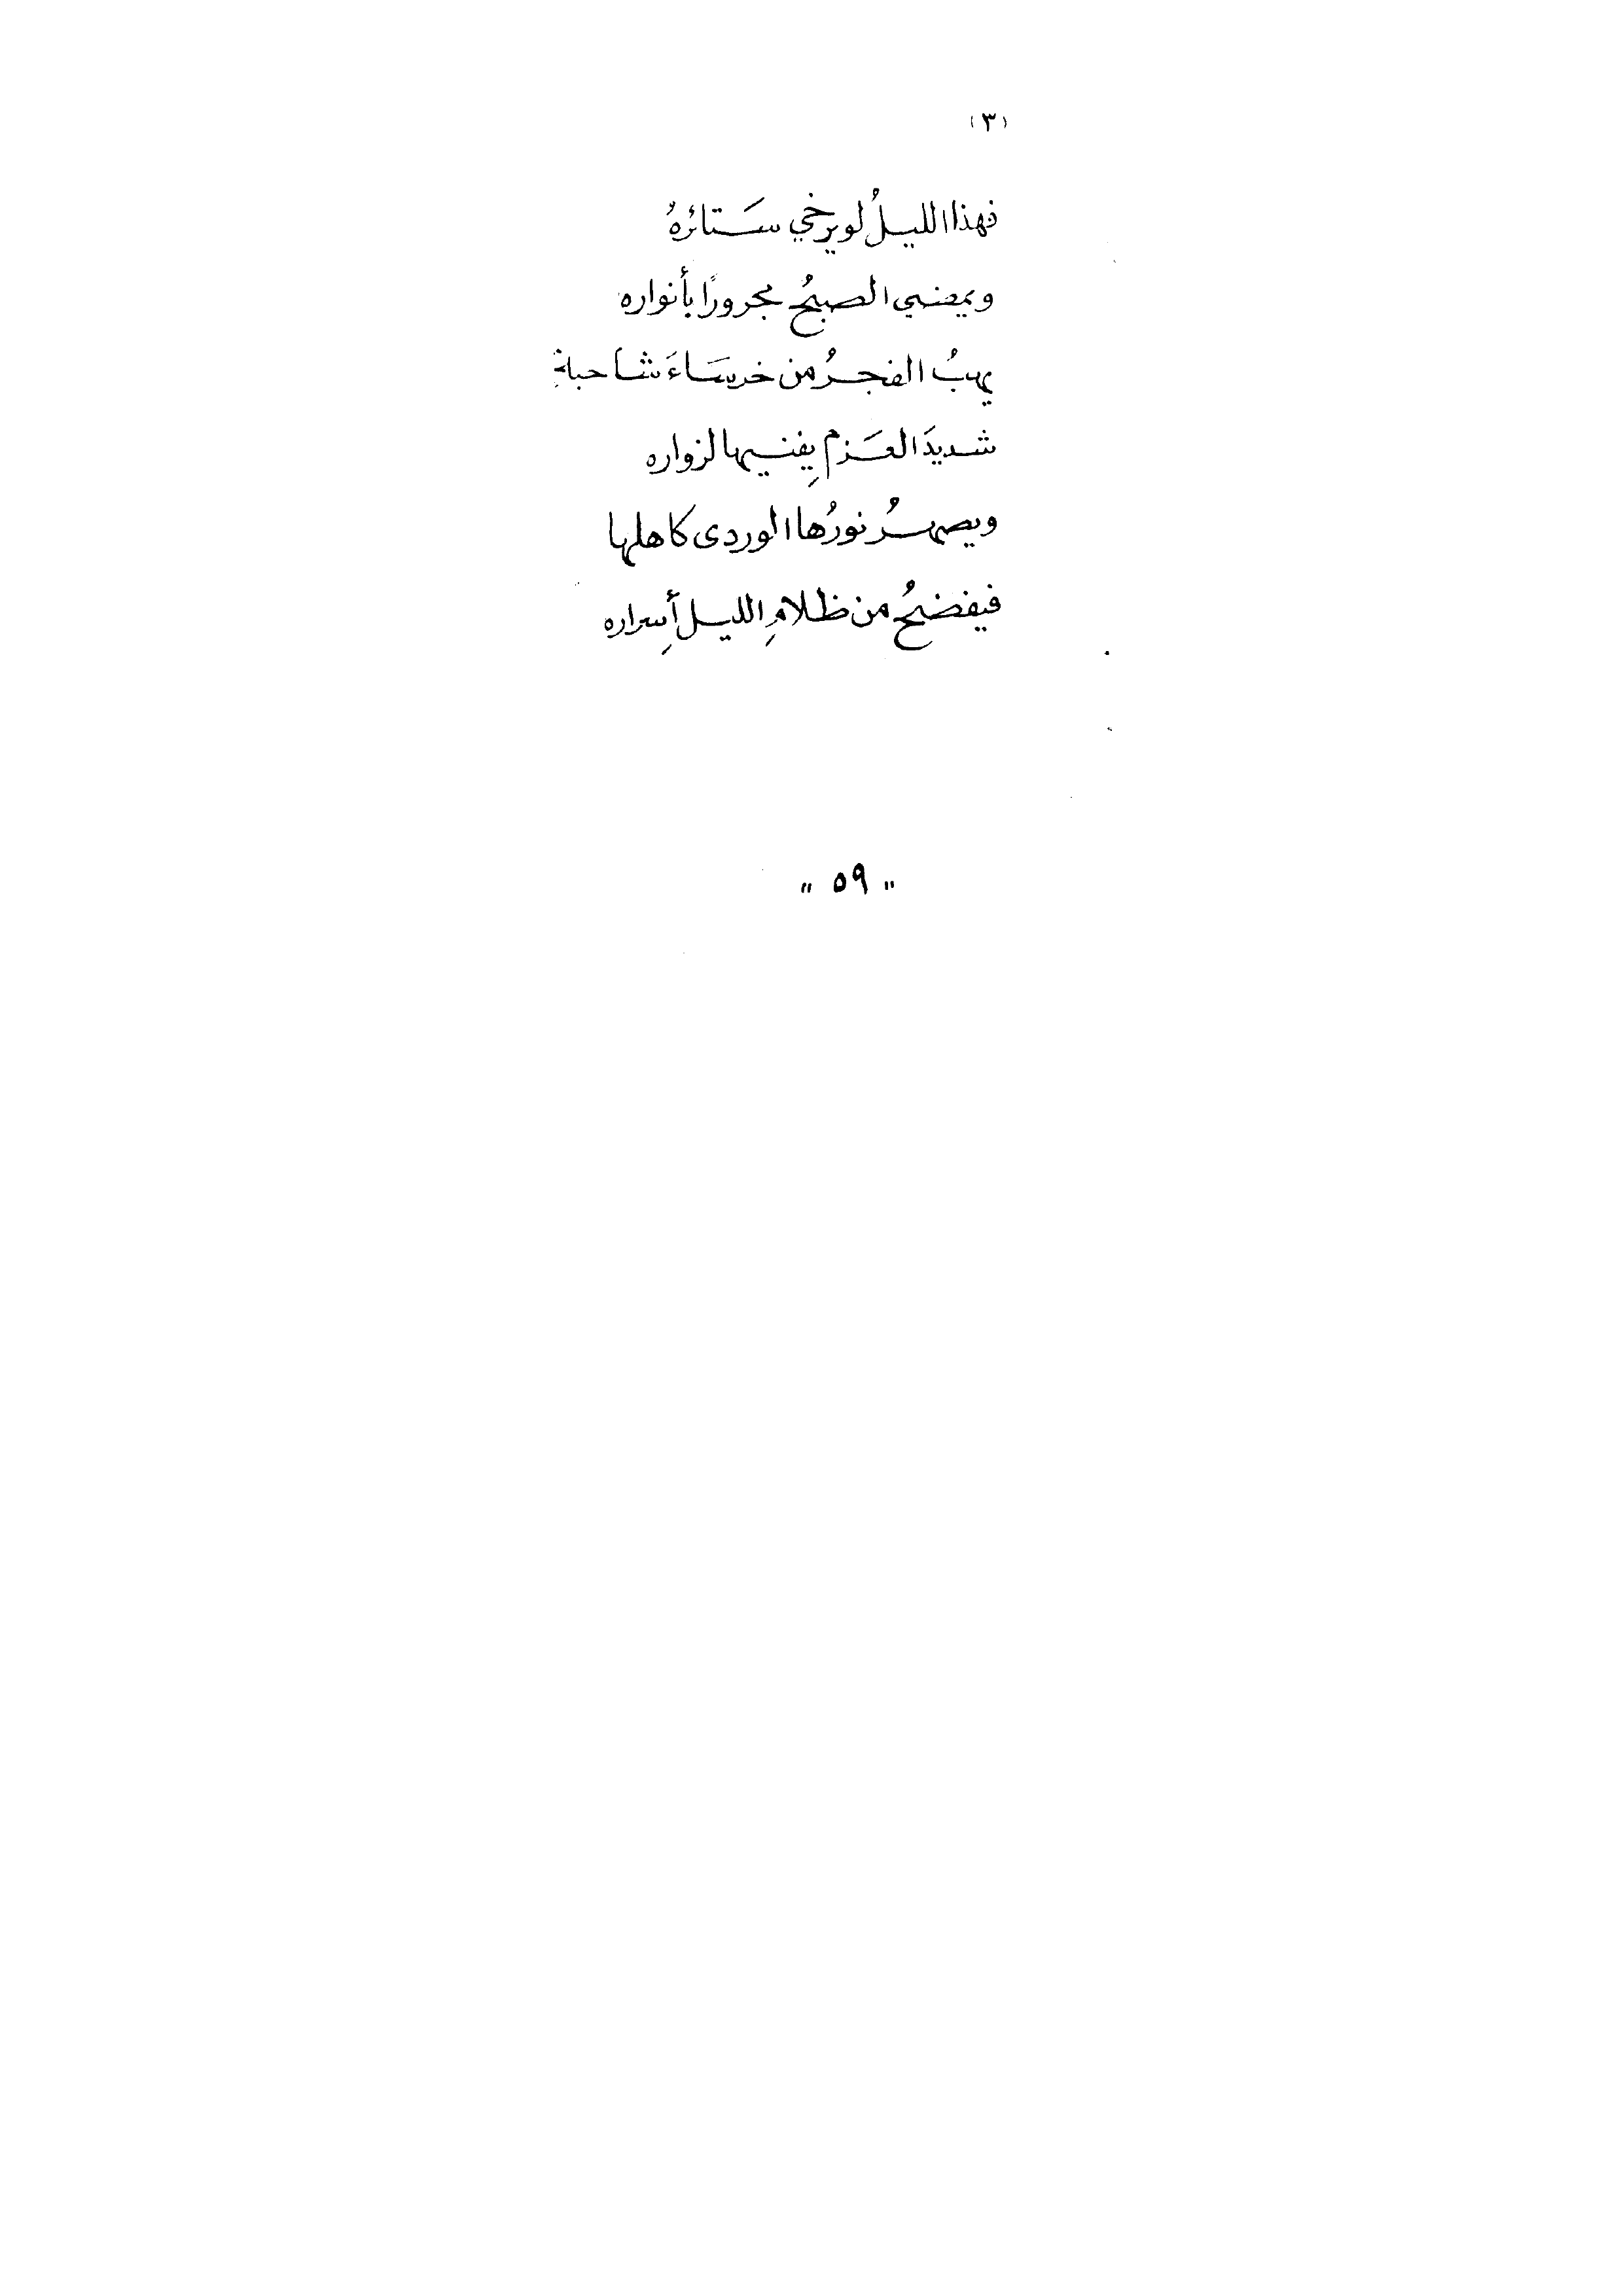 (٣)
فهذا الليلُ لو يرخي سَتائرُهُ
ويمضي الصبحُ مجرورًا بأنواره
يهبُ الفجرُ من خرسَاءَ شاحبةِ
شديدَ العَزمِ يفنيها لزواره
ويصهرُ نورُها الوردى كاهلها
فيفضحُ من ظلامِ الليلِ أسراره
" ٥٩ "